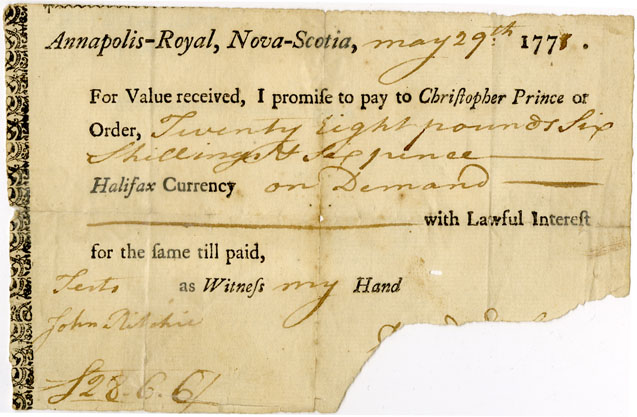 Annapolis-Royal, Nova-Scotia, may 29th 1771.
For Value received, I promiſe to pay to Chriſtopher Prince or
Order, Twenty Eight pounds Six
Shillings & Sixpence
Halifax Currency on Demand
with Lawful Intereſt
for the same till paid,
as Witneſs my Hand
Tests
John Ritchie
£28.6.6/